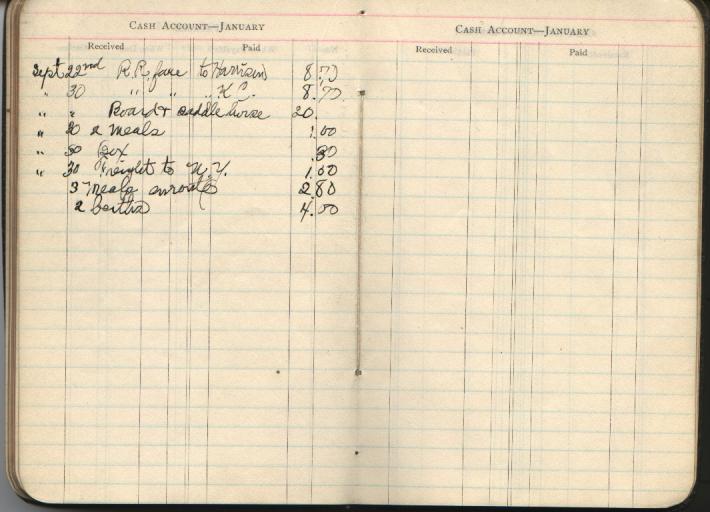 CASH ACCOUNT—JANUARY
Received Paid
Sept 22nd R.R. fare to Harrison 8.70
" 30 " " " K.C. 8.70
" " Board & saddle horse 20.
" 30 2 meals 1.00
" 30 Box .80
" 30 Freight to N.Y. 1.00
3 meals enroute 2.80
2 berths 4.00
CASH ACCOUNT—JANUARY
Received Paid